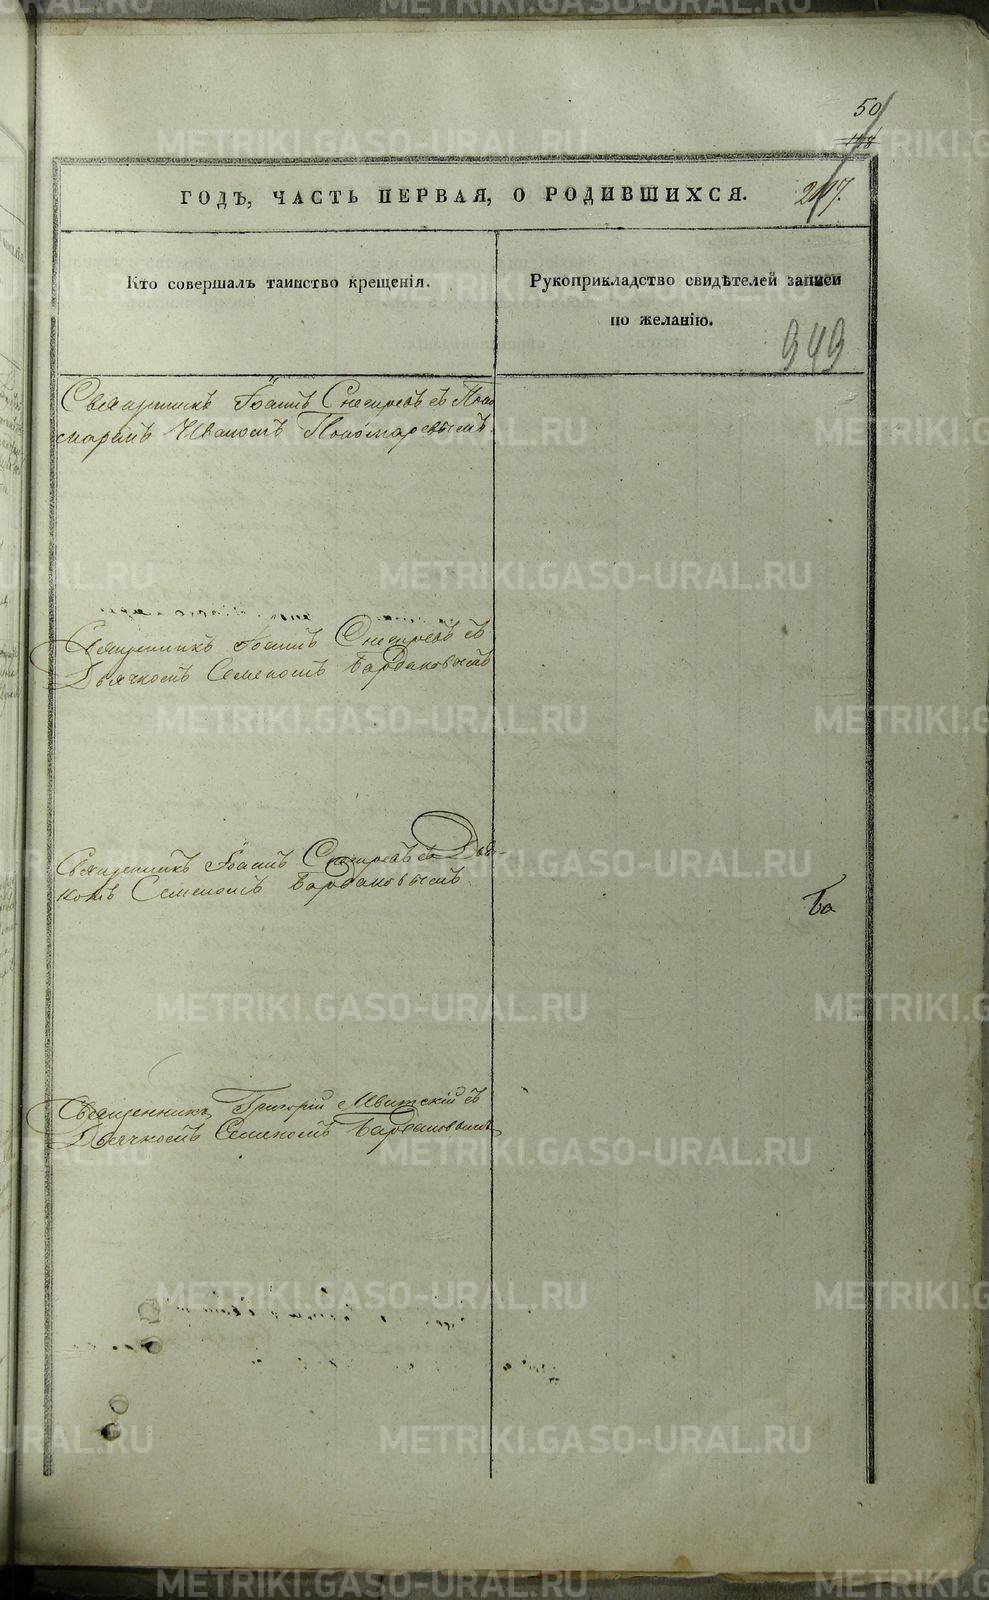 50
247.
ГОДЪ, ЧАСТЬ ПЕРВАЯ, О РОДИВШИХСЯ.
Кто совершалъ таинство крещенія.
Рукоприкладство свидѣтелей записи
по желанію.
949
Священникъ Іоаннъ Снегиревъ съ Поно
маремъ Иваномъ Пономаревымъ
Священникъ Іоаннъ Снегиревъ съ
Дьячкомъ Семеномъ Бардаковымъ
Священникъ Іоаннъ Снегиревъ съ Дьяч-
комъ Семеномъ Бардаковымъ
Ба
Священникъ Григорій съ
Дьячкомъ Семеномъ Бардаковымъ
METRIKI.GASO-URAL.RU